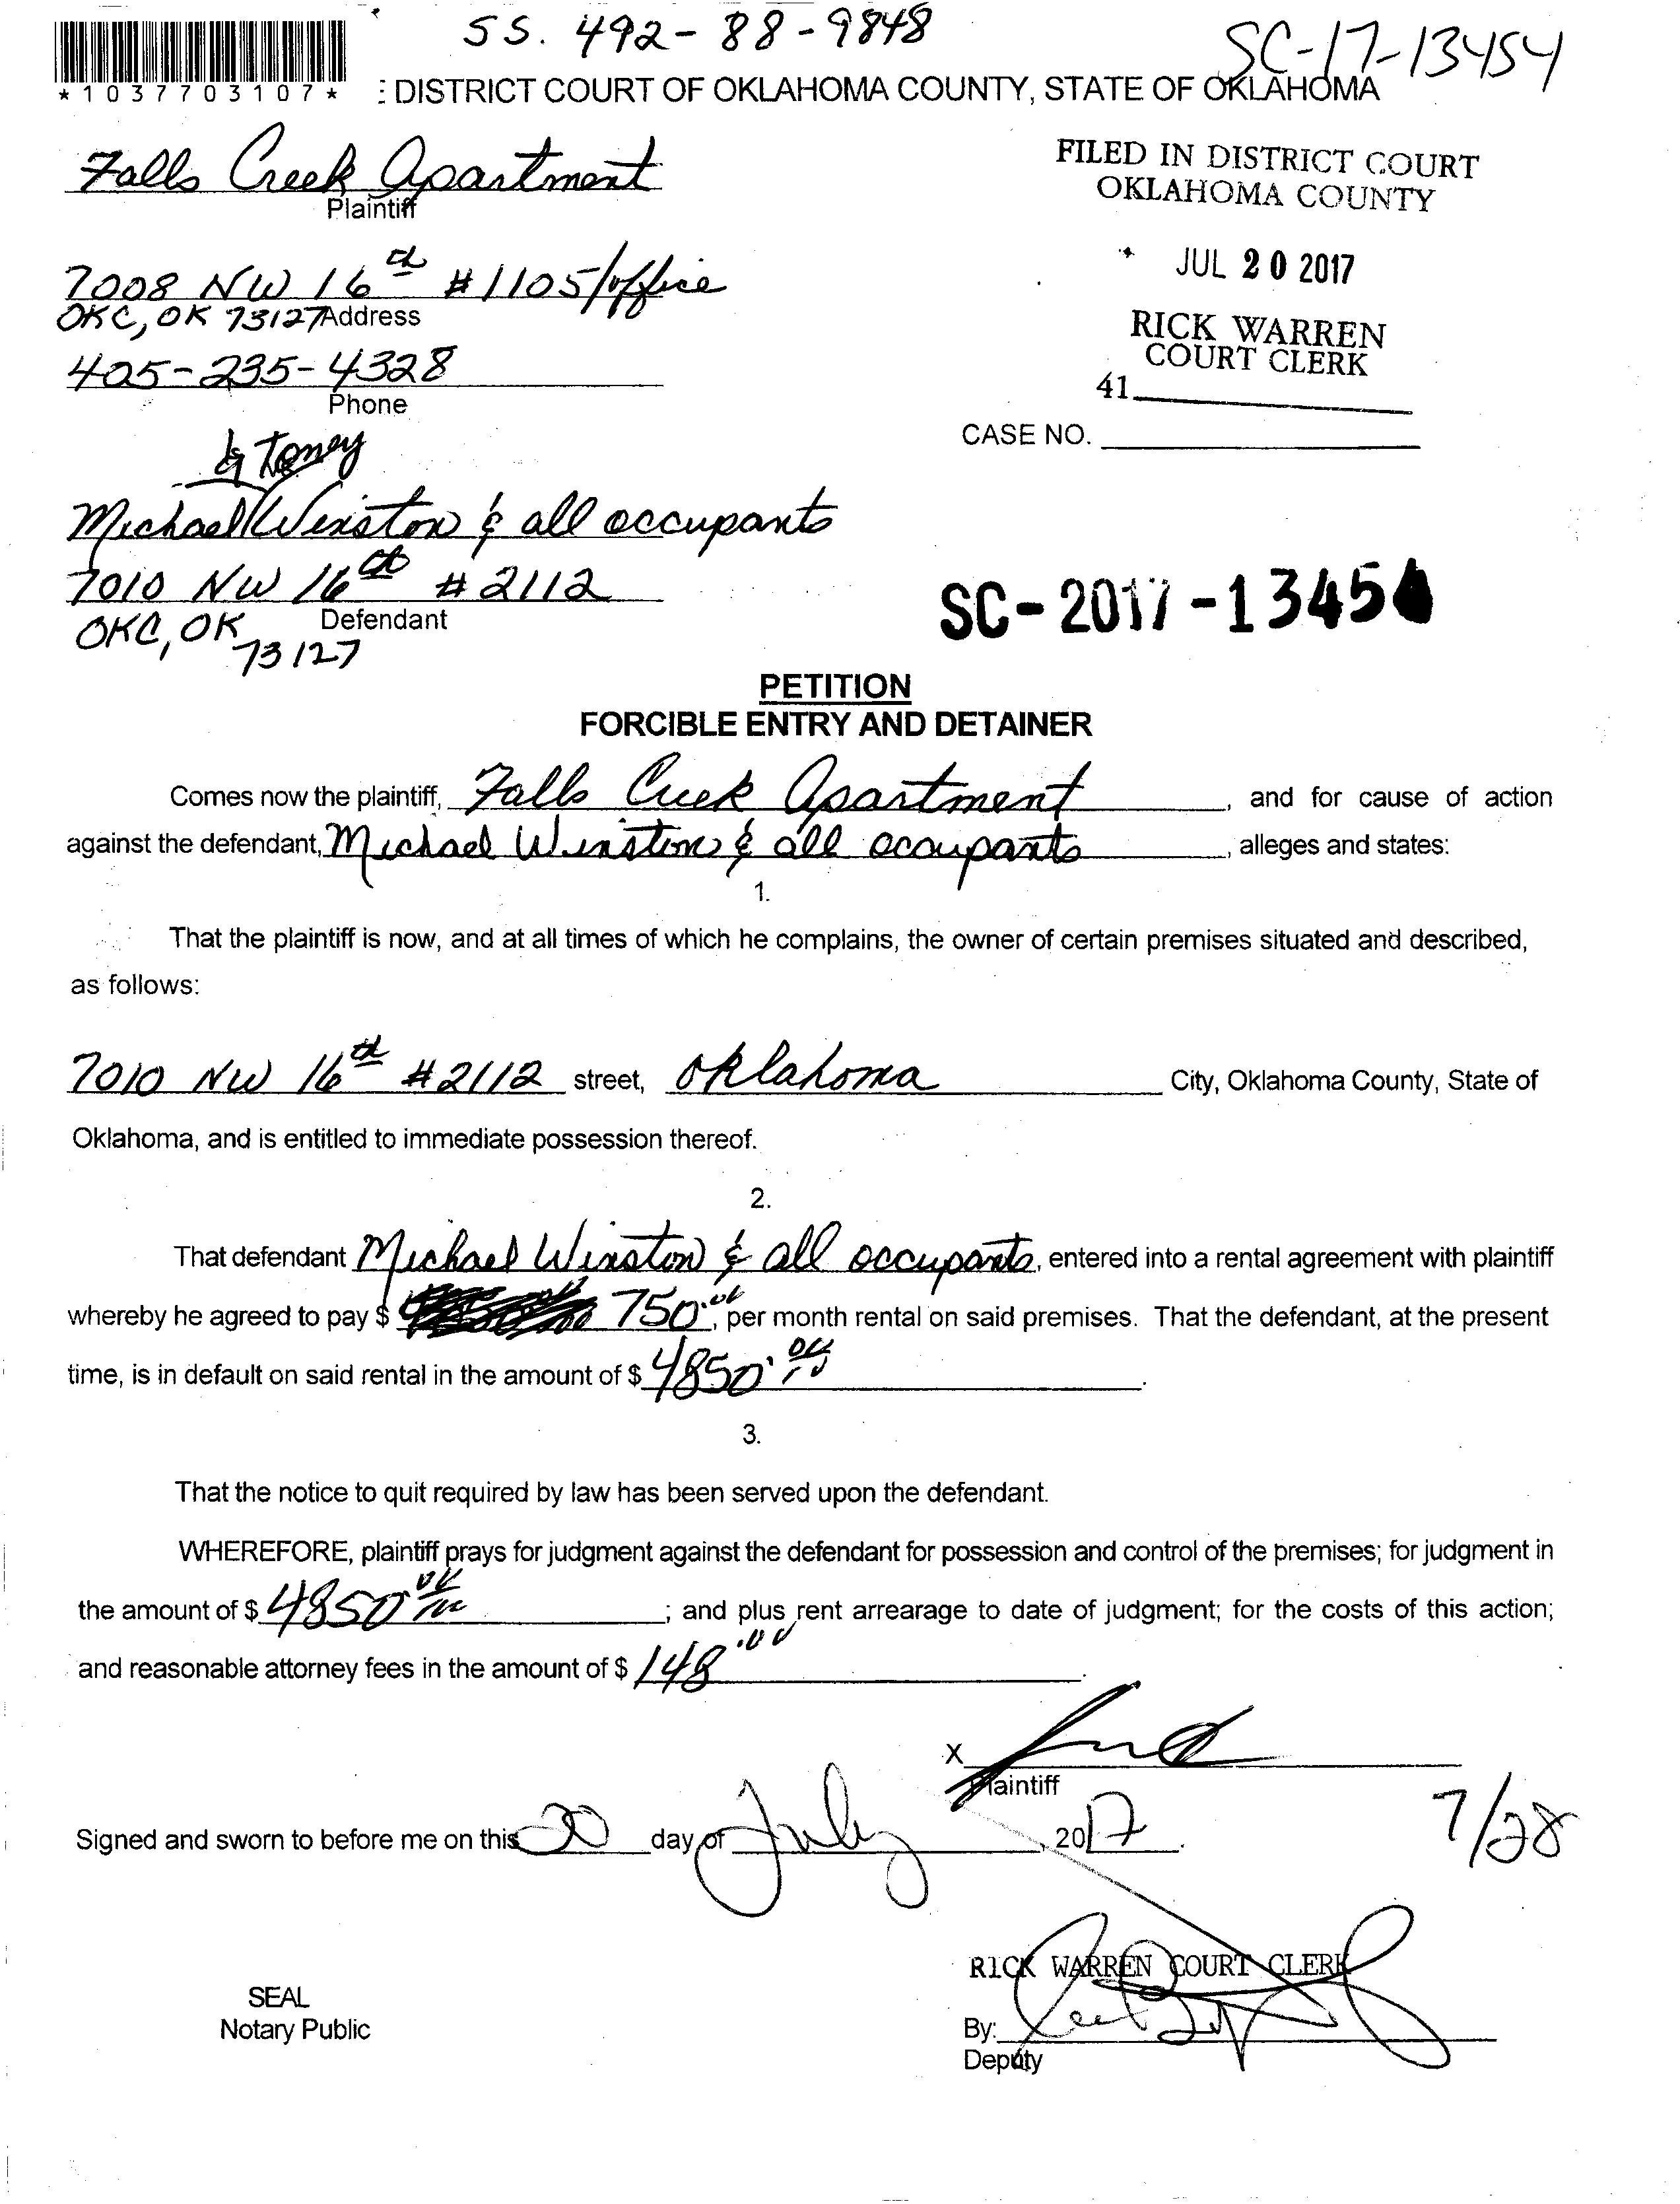 SS. 492-88-9848
SC-17-13454
*1037703107*
: DISTRICT COURT OF OKLAHOMA COUNTY, STATE OF OKLAHOMA
Falls Creek Apartment
Plaintiff
FILED IN DISTRICT COURT
OKLAHOMA COUNTY
JUL 20 2017
RICK WARREN
COURT CLERK
41
7008 NW 16th #1105/office
OKC, OK 73127 Address
405-235-4328
Phone
CASE NO.
& Toney
Michael Winston & all occupants
7010 NW 16th #2112
Defendant
OKC, OK
73127
SC-2017-13454
PETITION
FORCIBLE ENTRY AND DETAINER
Comes now the plaintiff, Falls Creek Apartment, and for cause of action
against the defendant, Michael Winston & all occupants, alleges and states:
1.
That the plaintiff is now, and at all times of which he complains, the owner of certain premises situated and described,
as follows:
7010 NW 16th #2112 street, Oklahoma City, Oklahoma County, State of
Oklahoma, and is entitled to immediate possession thereof.
2.
That defendant Michael Winston & all occupants, entered into a rental agreement with plaintiff
whereby he agreed to pay $ 750.00, per month rental on said premises. That the defendant, at the present
time, is in default on said rental in the amount of $ 4850.
3.
That the notice to quit required by law has been served upon the defendant.
WHEREFORE, plaintiff prays for judgment against the defendant for possession and control of the premises; for judgment in
the amount of $ 4850; and plus rent arrearage to date of judgment; for the costs of this action;
and reasonable attorney fees in the amount of $ 148.00.
X
Plaintiff
Signed and sworn to before me on this 20 day of July, 2017.
7/28
RICK WARREN COURT CLERK
SEAL
Notary Public
By:
Deputy